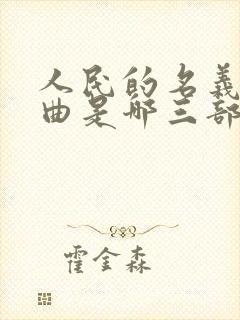 人民的名義
曲是哪三部
霍金森